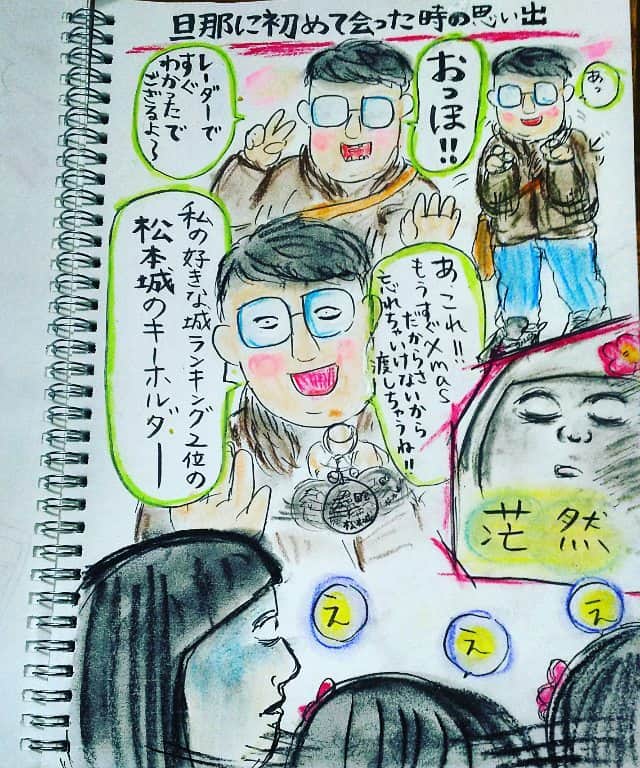 旦那に初めて会った時の思い出
あっ
おっほ!!
レーダーで
すぐ
わかったで
ござるよ～
ビッ
あ、これ!!
もうすぐXmas
だからさ
忘れちゃいけないから
渡しちゃうね!!
私の好きな城ランキング2位の
松本城のキーホルダー
茫然
え
え
え